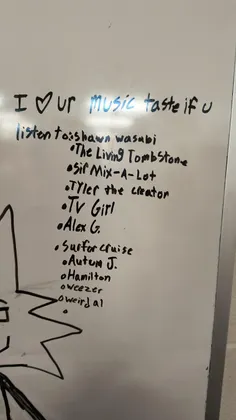 I ♡ ur music taste if u
listen to: shawn wasabi
•The Living Tombstone
•Sir Mix-A-Lot
•Tyler the creator
•TV Girl
•Alex G.
•Surfor cruise
•Autum J.
•Hamilton
•weezer
•weird al
•